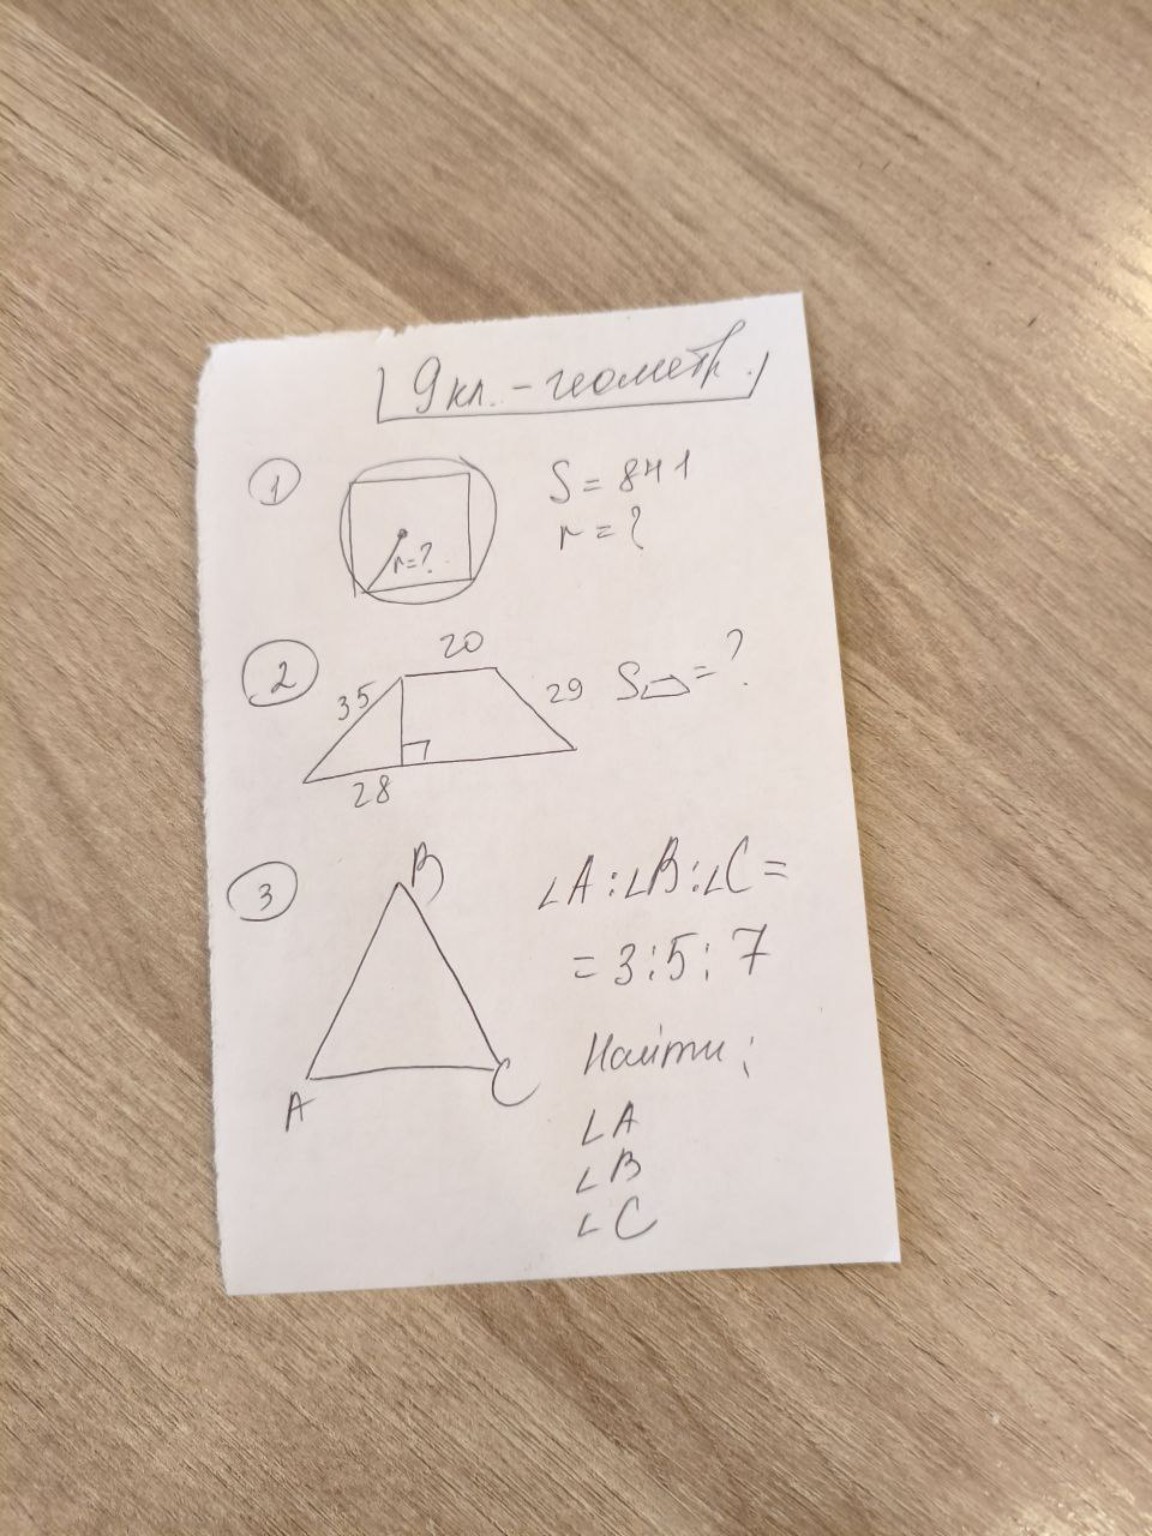 9 кл. - геометр.
1
S = 841
r = ?
r = ?
2
20
35
29
S▱ = ?
28
3
B
A
C
∠A : ∠B : ∠C =
= 3 : 5 : 7
Найти :
∠A
∠B
∠C